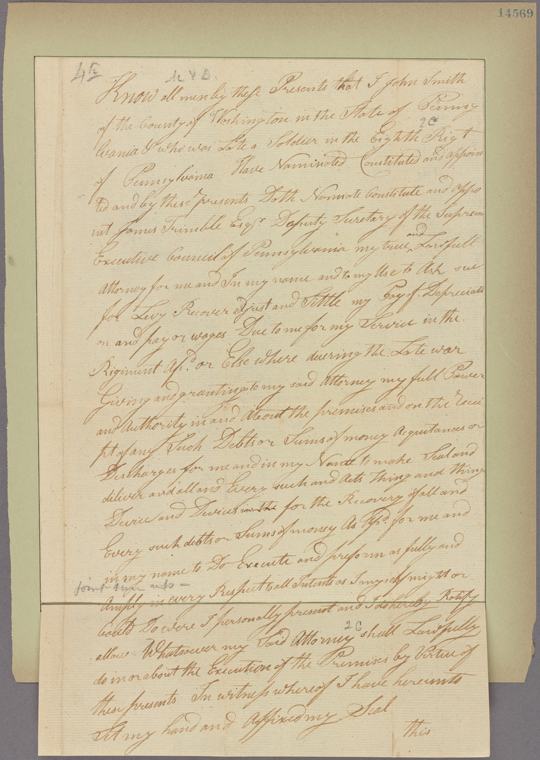 14569
Know all men by these Presents that I John Smith
of the County of Washington in the State of Pennsy
lvania & who was Late a Soldier in the Eighth Regt
of Pennsylvania Have Nominated Constituted and appoin
ted and by these Presents Doth Nominate Constitute and appo
int James Trimble Esqr Deputy Secretery of the Supream
Executive Council of Pennsylvania my true and Lawfull
Attorney for me and In my name and to my Use to Ask sue
for Levy Recover adjust and Settle my Pay of Depreciati
on and pay or wages Due to me for my Service in the
Regiment Afd. or Else where during the Late war
Giving and granting to my said Attorney my full Power
and Authority in and about the premises and on the Recei
pt of any Such Debts or Sums of money Aquitances or
Discharges for me and in my Name to make Seal and
deliver and all and Every such and Acts thing and things
Device and Devices for the Recovery of all and
Every such debts or Sums of money As Afd. for me and
in my name to Do Execute and preform as fully and
Amply in every Respect to all Intents as I myself might or
could Do were I personally present and I do hereby Ratify
allow Whatsoever my Said Attorney shall Lawfully
do in or about the Execution of the Premises by Virtue of
these presents In witness whereof I have hereunto
Set my hand and Affixed my Seal
this